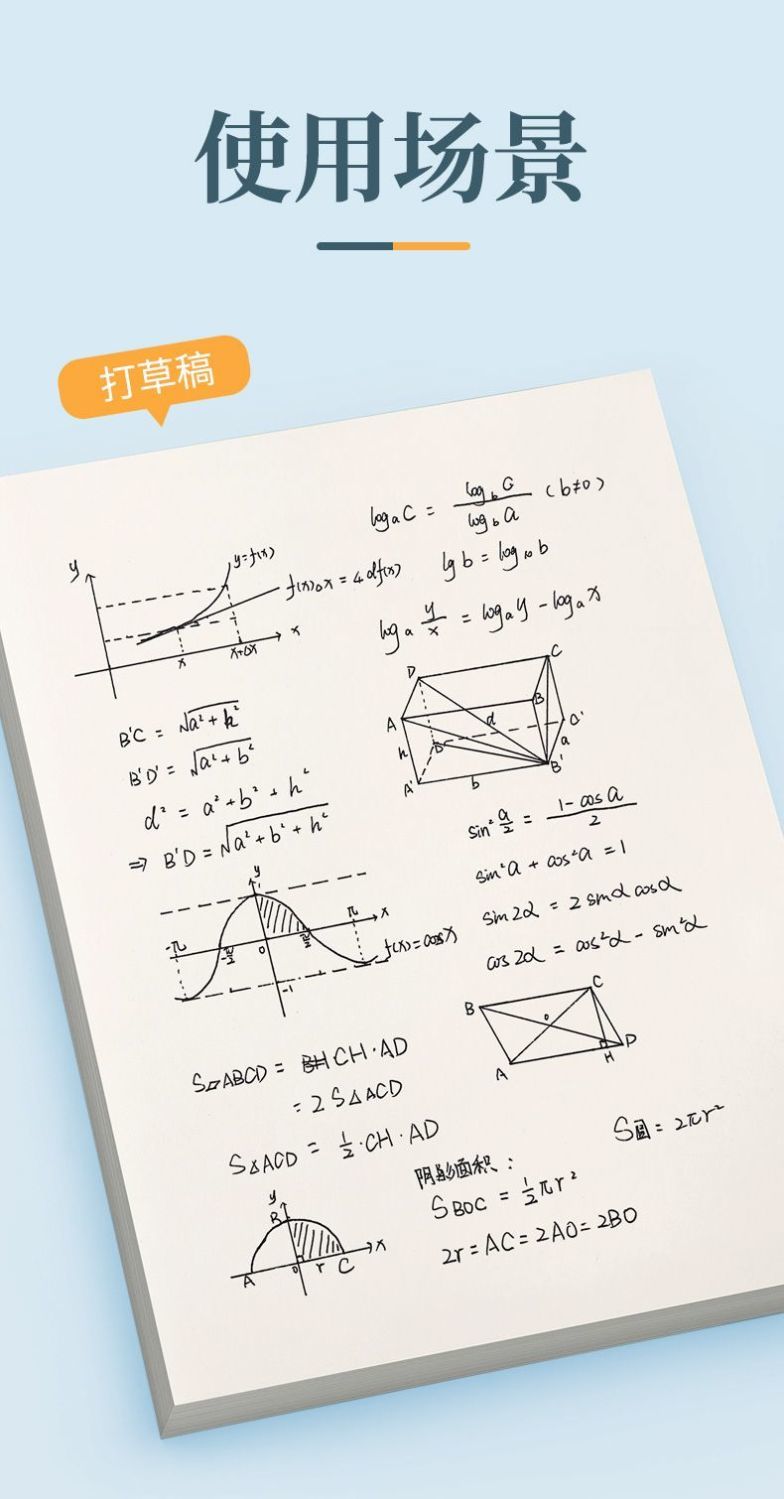 使用场景
打草稿
logₐC = log_b C / log_b a (b≠0)
y
y=f(x)
f(x)△x = 4df(x)
x
x
x+△x
lg b = log₁₀ b
logₐ y/x = logₐy - logₐx
D
C
A
B
d
C'
h
D'
a
A'
b
B'
B'C = √a²+h²
B'D' = √a²+b²
d² = a²+b²+h²
⇒ B'D = √a²+b²+h²
sin² a/2 = 1-cos a / 2
sin²a + cos²a = 1
sin2α = 2sinα cosα
cos2α = cos²α - sin²α
y
1
-π
-π/2
0
π/2
π
x
f(x)=cosx
-1
B
C
o
A
H
D
S▱ABCD = CH·AD
= 2S△ACD
S△ACD = 1/2·CH·AD
S圆 = 2πr²
阴影面积:
S BOC = 1/2πr²
2r = AC = 2AO = 2BO
y
B
x
A
o
r
C